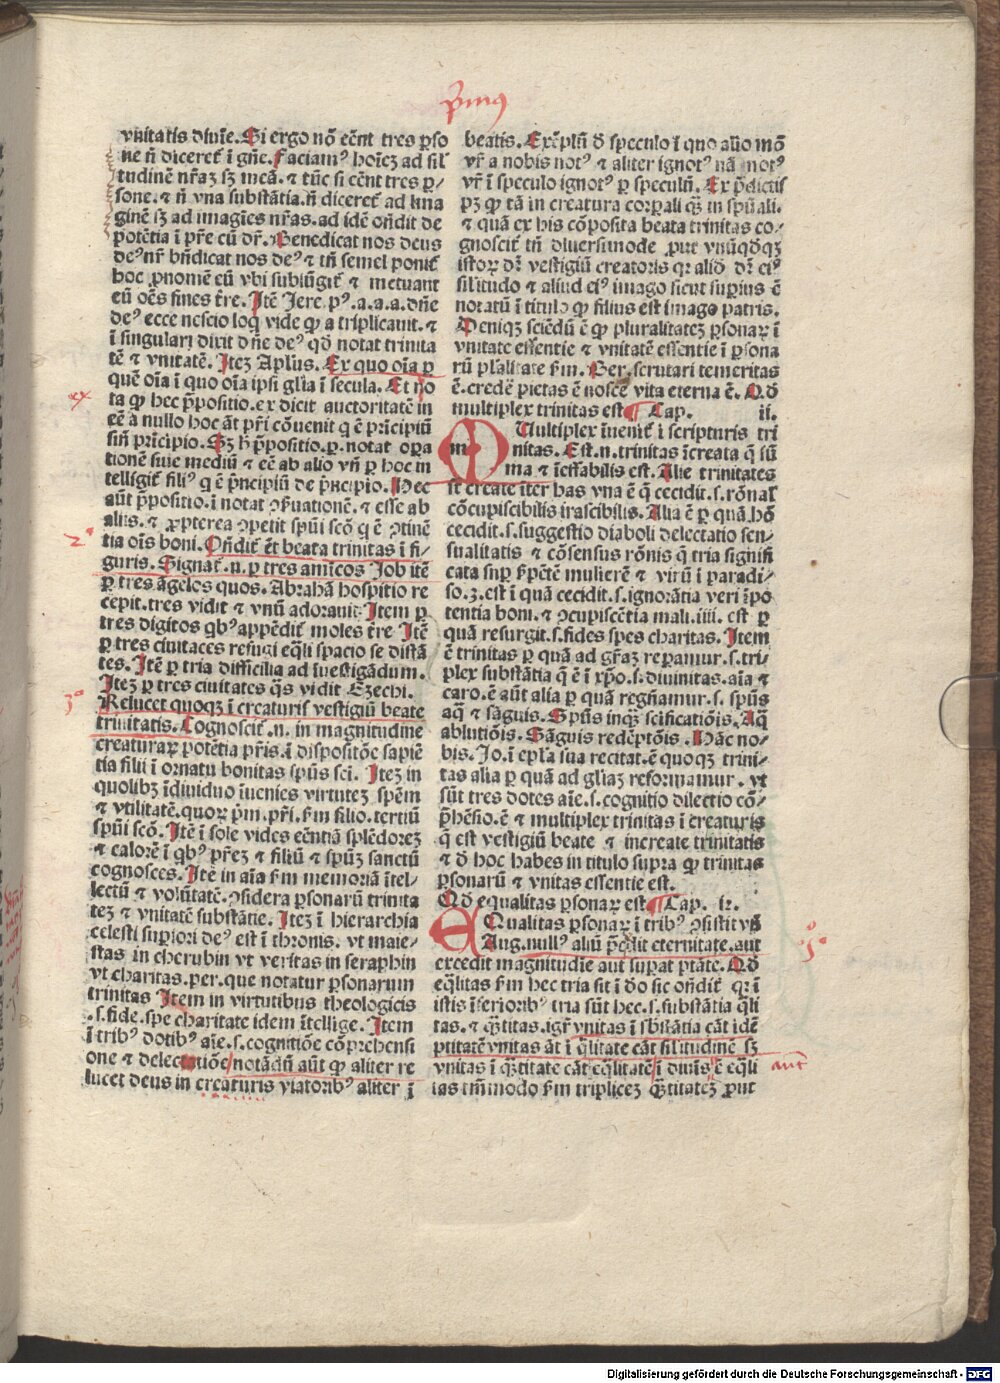 p̄mus
vnitatis diuīe. Si ergo nō eēnt tres ꝑso
ne n̄ diceret᷑ ī gn̄e. faciamꝰ hoīeꝫ ad sil̄
tudinē nr̄aꝫ sꝫ meā. ⁊ tūc si eēnt tres ꝑ⸗
sone. ⁊ n̄ vna substātia. n̄ diceret᷑ ad īma
ginē sꝫ ad imagīes nr̄as. ad idē on̄dit de
potētia ī pr̄e cū dr̄. Benedicat nos deus
deꝰ nr̄ bn̄dicat nos deꝰ ⁊ tn̄ semel ponit᷑
hoc ꝓnomē eū vbi subiūgit᷑ ⁊ metuant
eū oēs fines t̄re. Itē Iere. pº. a.a.a. dn̄e
deꝰ ecce nescio loq̄ vide ꝙ a triplicauit. ⁊
ī singulari dixit dn̄e deꝰ qd̄ notat trinita
tē ⁊ vnitatē. Iteꝫ Apl̄us. Ex quo oīa ꝑ
quē oīa ī quo oīa ipsi gl̄ia ī secula. Et no
ta ꝙ hec p̄positio. ex dicit auctoritatē in
eē a nullo hoc āt pr̄i cōuenit q ē pricipiū
sin̄ prīcipio. Sꝫ h̄ p̄positio. ꝑ. notat oꝑa
tionē siue mediū ⁊ eē ab alio vn̄ ꝑ hoc in
telligit᷑ filiꝰ q ē p̄ncipiū de p̄ncipio. Hec
aūt p̄positio. ī notat ꝯẜuationē. ⁊ esse ab
aliis. ⁊ ꝓpterea ꝯpetit spūi scō q̄ ē ꝯtinē
tia oīs boni. On̄dit᷑ ēt beata trinitas ī fi⸗
guris. Signat᷑. n. ꝑ tres amicos Job itē
ꝑ tres āgelos quos. Abrahā hospitio re
cepit. tres vidit ⁊ vnū adorauit. Item ꝑ
tres digitos qbꝰ appēdit᷑ moles t̄re Itē
ꝑ tres ciuitaces refugi eq̄li spacio se distā
tes. Itē ꝑ tria difficilia ad īuestigādum.
Iteꝫ ꝑ tres ciuitates q̄s vidit Ezechi.
Relucet quoqꝫ ī creaturis vestigiū beate
trinitatis. Cognoscit᷑. n. in magnitudine
creaturaꝝ potētia pr̄is. ī dispositōe sapiē
tia filii ī ornatu bonitas spūs sci. Iteꝫ in
quolibꝫ īdiuiduo īuenies virtuteꝫ spēm
⁊ vtilitatē. quoꝝ pm̄. pr̄i. ẜm filio. tertiū
spūi scō. Itē ī sole vides eēntiā splēdoreꝫ
⁊ calorē ī qbꝰ pr̄eꝫ ⁊ filiū ⁊ spūꝫ sanctū
cognosces. Itē in aīa ẜm memoriā ītel⸗
lectū ⁊ volūtatē. ꝯsidera ꝑsonarū trinita
teꝫ ⁊ vnitatē substātie. Iteꝫ ī hierarchia
celesti suꝑiori deꝰ est ī thronis. vt maie⸗
stas in cherubin vt veritas in seraphin
vt charitas. per. que notatur ꝑsonarum
trinitas Item in virtutibus theologicis
.s. fide. spe charitate idem ītellige. Item
ī tribꝰ dotibꝰ aīe. s. cognitiōe cōprehensi
one ⁊ delectatiōe notādū aūt ꝙ aliter re
lucet deus in creaturis viatoribꝰ aliter ī
ex
2º
3º
beatis. Exēplū ď speculo ī quo aliō mō
vr̄ a nobis notꝰ ⁊ aliter ignotꝰ nā notꝰ
vr̄ ī speculo ignotꝰ ꝑ speculū. Ex p̄dictis
pꝫ ꝙ tā in creatura corꝑali q̄ꝫ in spūali.
⁊ quā ex his cōposita beata trinitas co⸗
gnoscit᷑ tn̄ diuersimode ꝓut vnūqd̄qꝫ
istoꝝ dr̄ vestigiū creatoris qꝛ aliď dr̄ eiꝰ
sil̄itudo ⁊ aliud eiꝰ imago sicut suꝑius ē
notatū ī titulo ꝙ filius est imago patris.
Deniqꝫ sciēdū ē ꝙ pluralitateꝫ ꝑsonaꝝ ī
vnitate essentie ⁊ vnitatē essentie ī ꝑsona
rū pl̄alitate ẜm. Ber. scrutari temeritas
ē. credē pietas ē noscē vita eterna ē. Qď
multiplex trinitas est Cap. ii.
MUltiplex īuenit᷑ ī scripturis tri
nitas. Est. n. trinitas īcreata q̄ sū
ma ⁊ īeffabilis est. Alie trinitates
st̄ create īter has vna ē q̄ cecidit. s. rōnal̄
cōcupiscibilis irascibilis. Alia ē ꝑ quā hō
cecidit. s. suggestio diaboli delectatio sen⸗
sualitatis ⁊ cōsensus rōnis q̄ tria signifi
cata snꝑ ẜpētē mulierē ⁊ virū ī paradi⸗
so. 3. est ī quā cecidit. s. ignorātia veri īpo
tentia boni. ⁊ ꝯcupiscētia mali. iiii. est ꝑ
quā resurgit. s. fides spes charitas. Item
ē trinitas ꝑ quā ad gr̄aꝫ reꝑamur. s. tri⸗
plex substātia q̄ ē ī xp̄o. s. diuinitas. aīa ⁊
caro. ē aūt alia ꝑ quā regn̄amur. s. spūs
aq̄ ⁊ sāguis. Spūs inqꝫ scificatiōis. Aq̄
ablutiōis. Sāguis redēptōis. Hāc no⸗
bis. Jo. ī epl̄a sua recitat. ē quoqꝫ trini⸗
tas alia ꝑ quā ad gl̄iaꝫ reformamur. vt
sūt tres dotes aīe. s. cognitio dilectio cō⸗
p̄hēsio. ē ⁊ multiplex trinitas ī creaturis
q̄ est vestigiū beate ⁊ increate trinitatis
⁊ ď hoc habes in titulo supra ꝙ trinitas
ꝑsonarū ⁊ vnitas essentie est.
Qď equalitas ꝑsonaꝝ est Cap. ix.
EQualitas ꝑsonaꝝ ī tribꝰ ꝯsistit vn̄
Aug. nullꝰ aliū p̄cedit eternitate. aut
excedit magnitudīe aut suꝑat ptāte. Qď
eq̄litas ẜm hec tria sit ī ďo sic on̄dit᷑ qꝛ ī
istis īferioribꝰ tria sūt hec. s. substātia q̄li
tas. ⁊ q̄titas. igr̄ vnitas ī sb̄stātia cāt idē
ptitatē vnitas āt ī q̄litate cāt sil̄itudinē sꝫ
vnitas ī q̄titate cāt eq̄litatē ī diuīs ē eq̄li
tas tm̄modo ẜm tripliceꝫ q̄titateꝫ ꝓut
aut